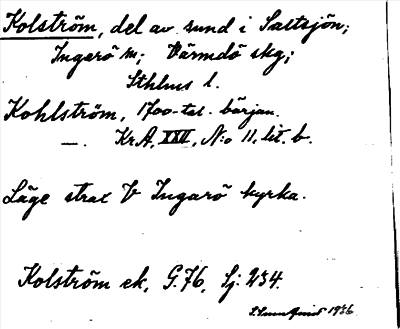 Kolström, del av sund i Saltsjön;
Ingarö sn; Värmdö skg;
Sthlms l.
Kohlström, 1700-tal. början.
—. KrA, XXII, N:o 11, lit. b.
Läge strax V Ingarö kyrka.
Kolström ek, G. 76, Sj: 234.
1936